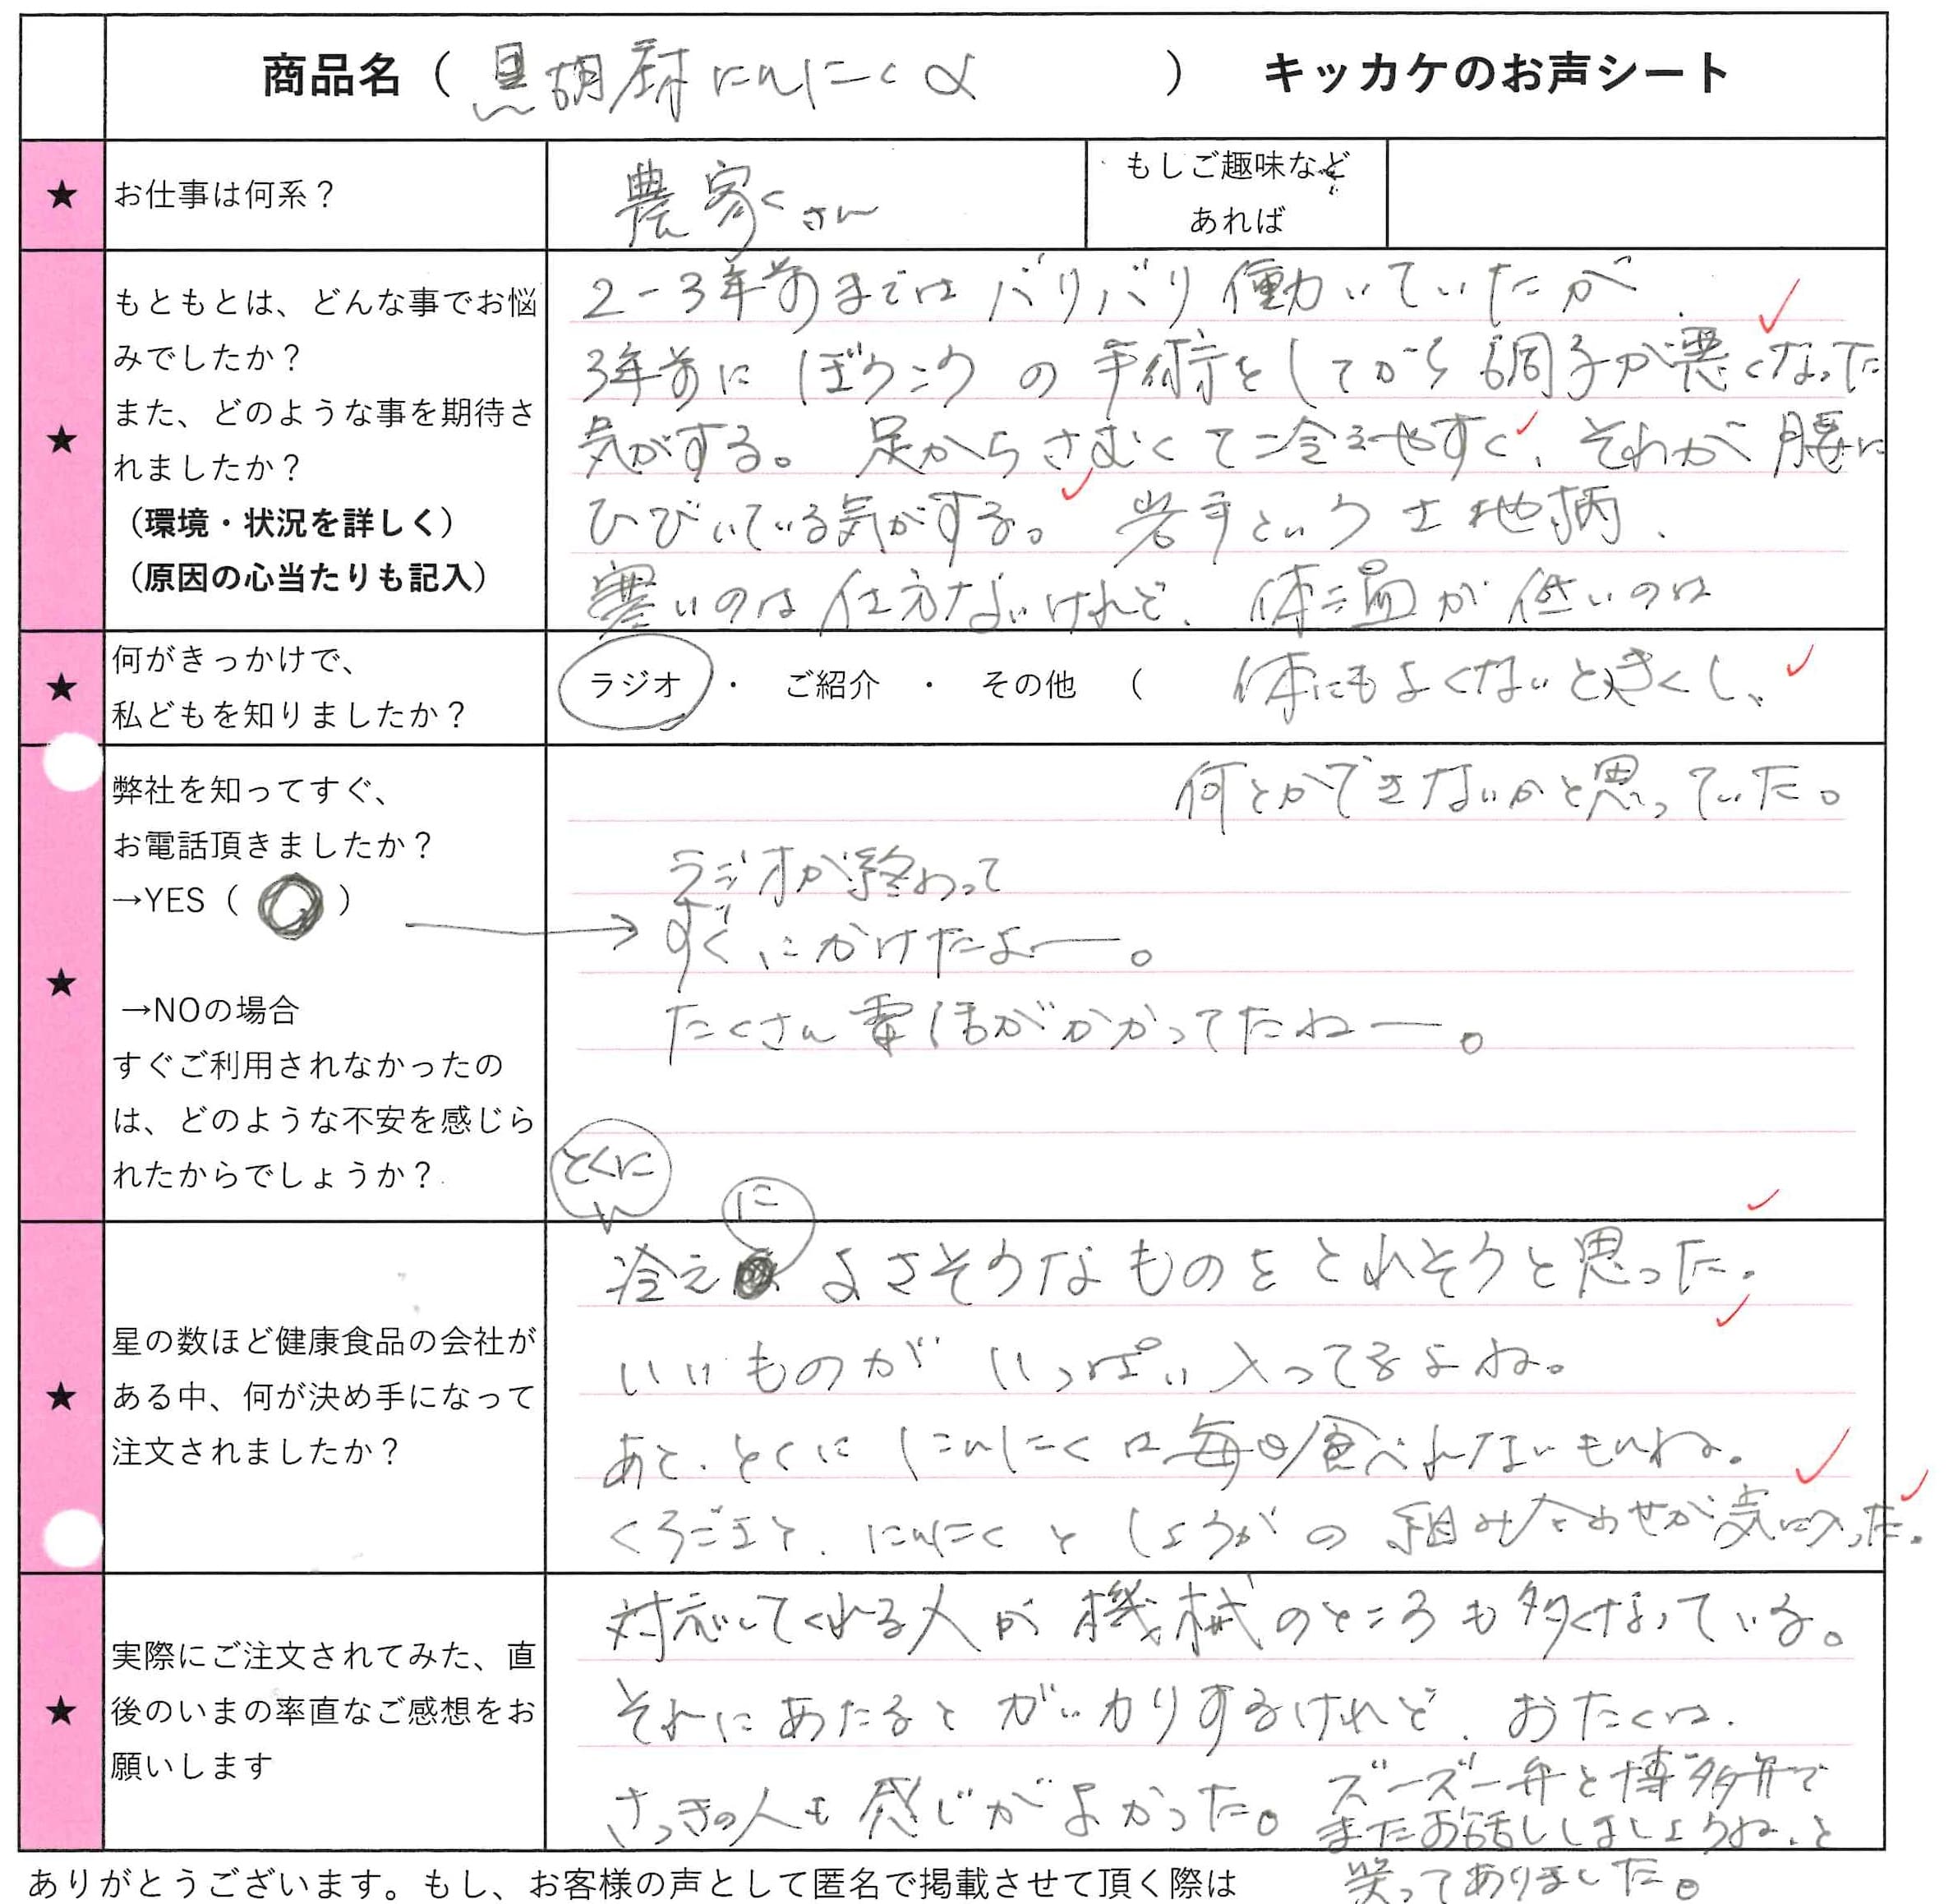 商品名（ 黒胡麻にんにくα ） キッカケのお声シート
★ お仕事は何系？ 農家さん もしご趣味など
あれば
★ もともとは、どんな事でお悩
みでしたか？
また、どのような事を期待さ
れましたか？
（環境・状況を詳しく）
（原因の心当たりも記入）
2-3年前まではバリバリ働いていたが
3年前にぼうこうの手術をしてから調子が悪くなった
気がする。足からさむくて冷えやすく、それが腰に
ひびいている気がする。岩手という土地柄、
寒いのは仕方ないけれど、体温が低いのは
★ 何がきっかけで、
私どもを知りましたか？
ラジオ ・ ご紹介 ・ その他 （ ）
体にもよくないときくし、
何とかできないかと思っていた。
★ 弊社を知ってすぐ、
お電話頂きましたか？
→YES（ ○ ）
→NOの場合
すぐご利用されなかったの
は、どのような不安を感じら
れたからでしょうか？
ラジオが終わって
すぐにかけたよー。
たくさん電話がかかってたねー。
★ 星の数ほど健康食品の会社が
ある中、何が決め手になって
注文されましたか？
とくに
に
冷え よさそうなものをとれそうと思った。
いいものがいっぱい入ってるよね。
あと、とくににんにくは毎日食べれないもんね。
くろごまと、にんにくとしょうがの組み合わせが気に入った。
★ 実際にご注文されてみた、直
後のいまの率直なご感想をお
願いします
対応してくれる人が機械のところも多くなっている。
それにあたるとがっかりするけれど、おたくは、
さっきの人も感じがよかった。
ズーズー弁と博多弁で
またお話ししましょうね、と
笑ってありました。
ありがとうございます。もし、お客様の声として匿名で掲載させて頂く際は